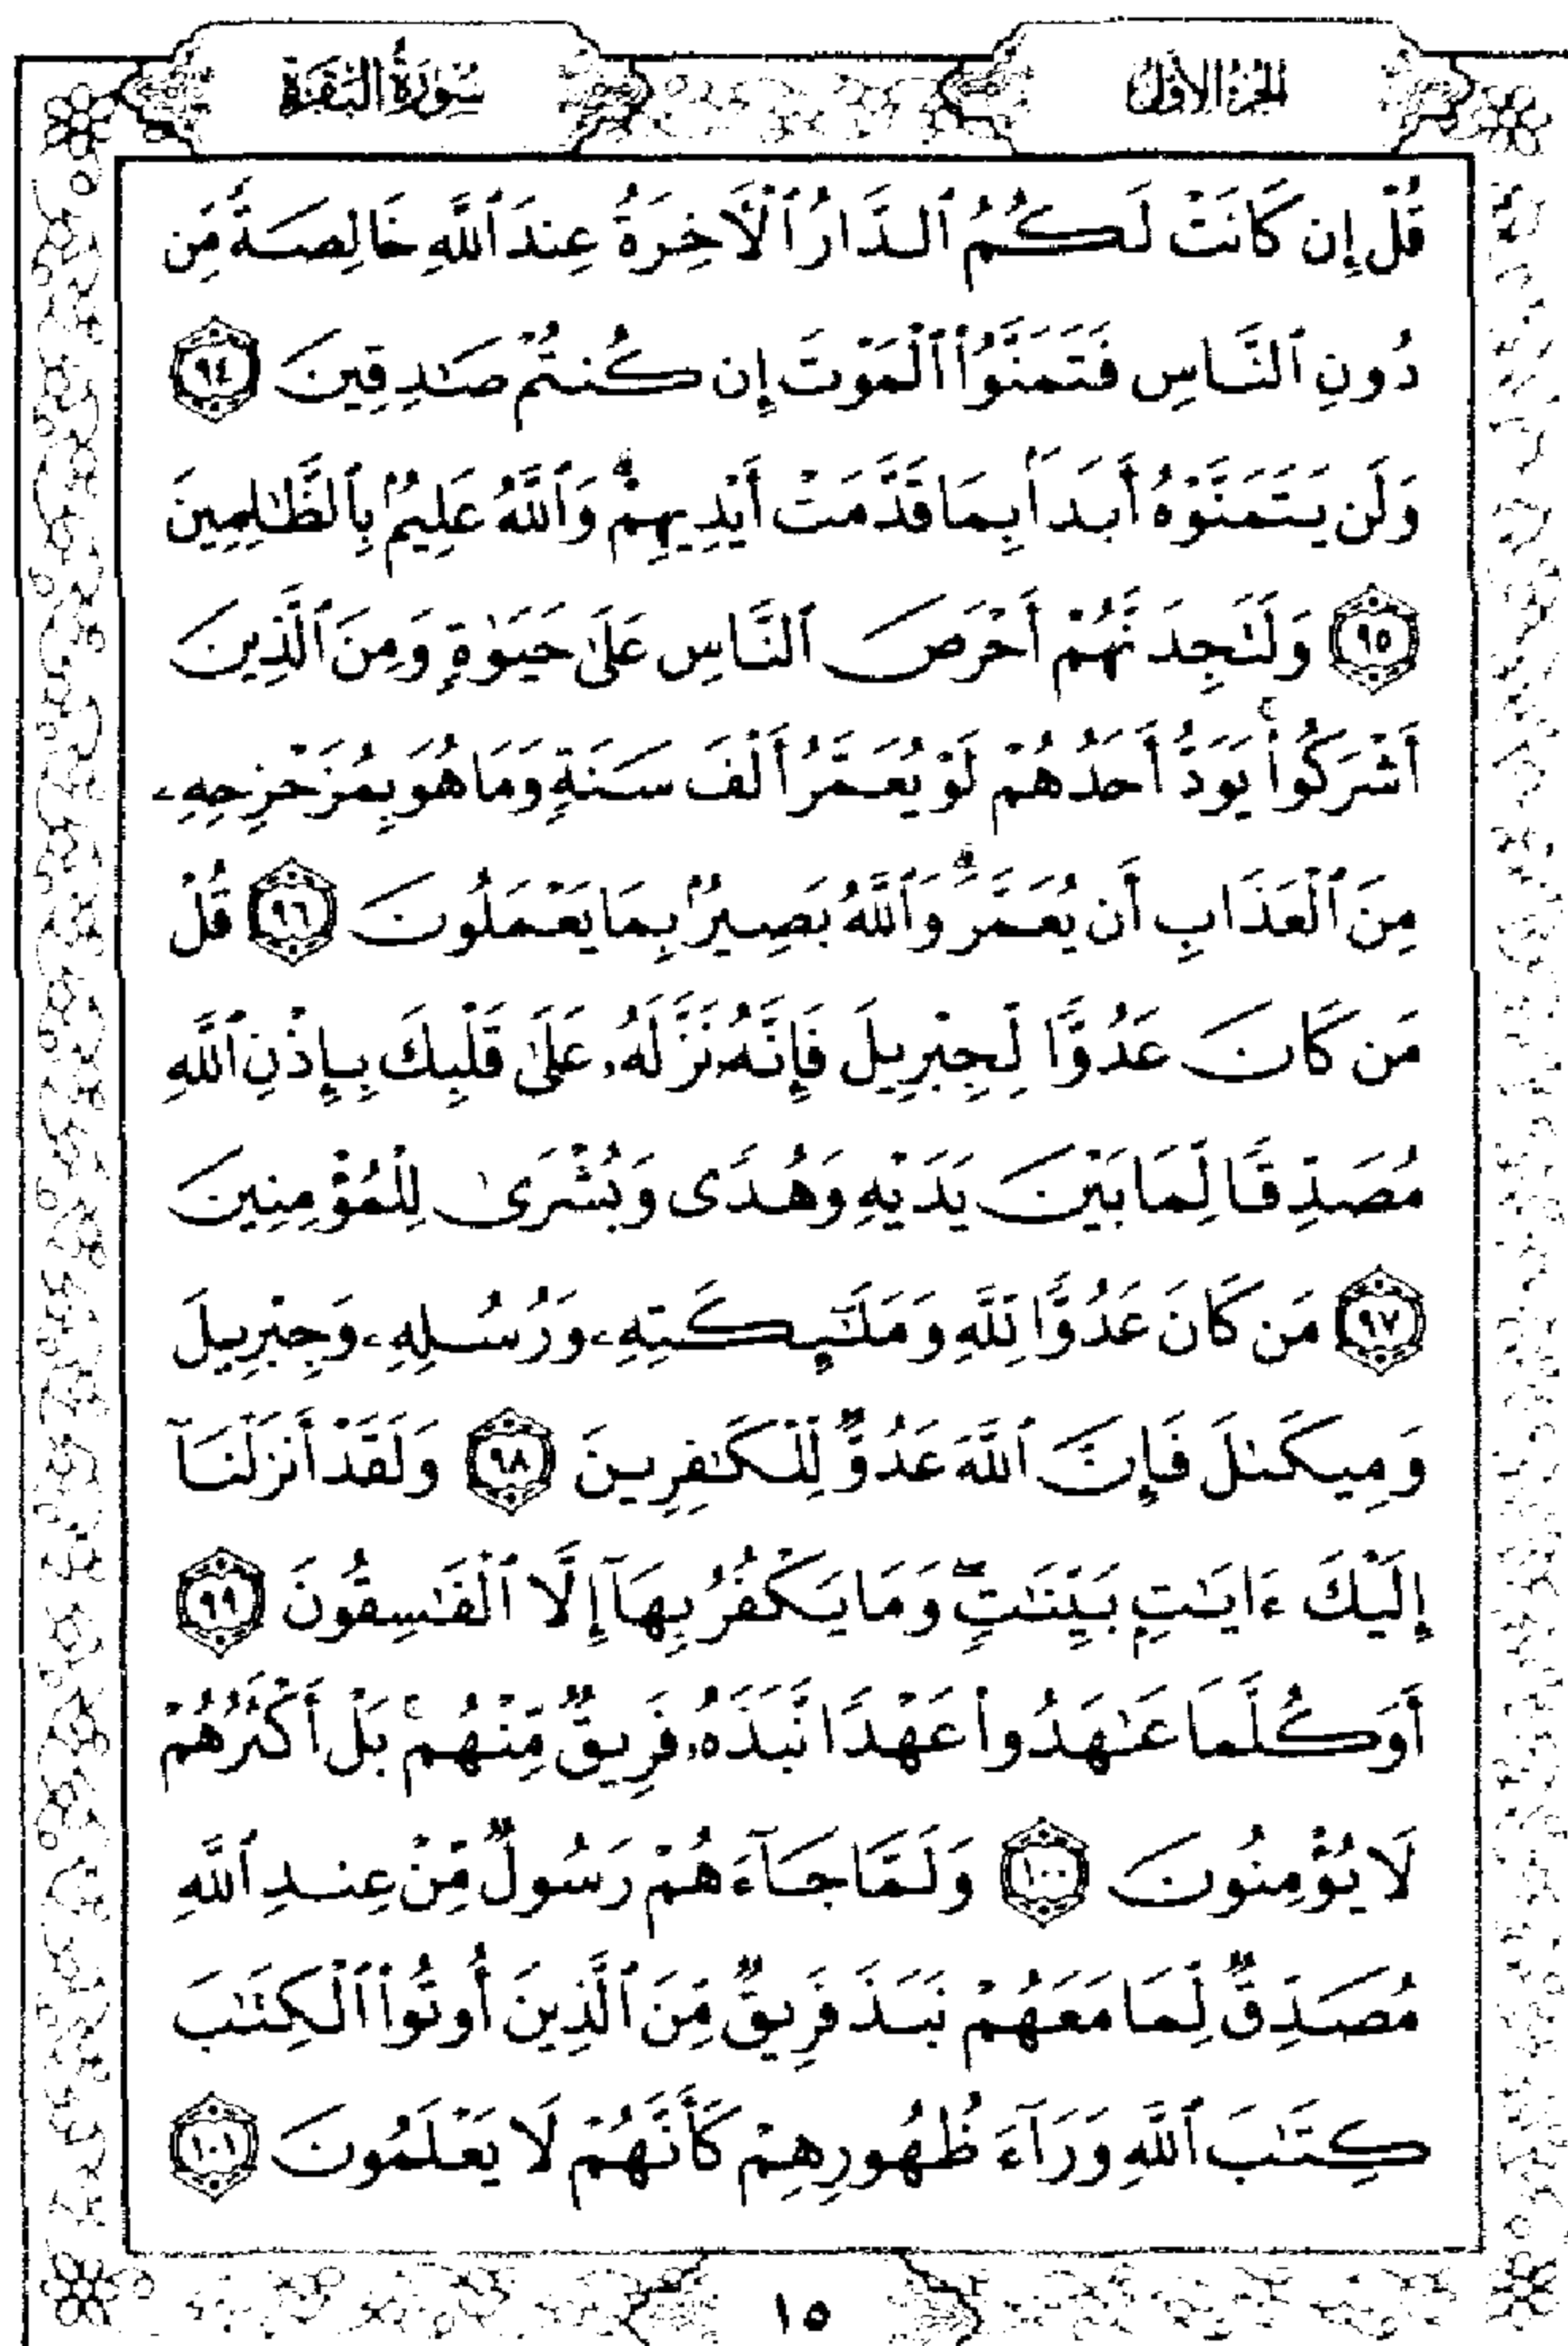 الجزء الأول
سورة البقرة
قُلْ إِن كَانَتْ لَكُمُ ٱلدَّارُ ٱلْأَخِرَةُ عِندَ ٱللَّهِ خَالِصَةً مِّن
دُونِ ٱلنَّاسِ فَتَمَنَّوُا۟ ٱلْمَوْتَ إِن كُنتُمْ صَـٰدِقِينَ ٩٤
وَلَن يَتَمَنَّوْهُ أَبَدَۢا بِمَا قَدَّمَتْ أَيْدِيهِمْ ۗ وَٱللَّهُ عَلِيمُۢ بِٱلظَّـٰلِمِينَ
٩٥ وَلَتَجِدَنَّهُمْ أَحْرَصَ ٱلنَّاسِ عَلَىٰ حَيَوٰةٍ وَمِنَ ٱلَّذِينَ
أَشْرَكُوا۟ ۚ يَوَدُّ أَحَدُهُمْ لَوْ يُعَمَّرُ أَلْفَ سَنَةٍ وَمَا هُوَ بِمُزَحْزِحِهِۦ
مِنَ ٱلْعَذَابِ أَن يُعَمَّرَ ۗ وَٱللَّهُ بَصِيرُۢ بِمَا يَعْمَلُونَ ٩٦ قُلْ
مَن كَانَ عَدُوًّا لِّجِبْرِيلَ فَإِنَّهُۥ نَزَّلَهُۥ عَلَىٰ قَلْبِكَ بِإِذْنِ ٱللَّهِ
مُصَدِّقًا لِّمَا بَيْنَ يَدَيْهِ وَهُدًى وَبُشْرَىٰ لِلْمُؤْمِنِينَ
٩٧ مَن كَانَ عَدُوًّا لِّلَّهِ وَمَلَـٰٓئِكَتِهِۦ وَرُسُلِهِۦ وَجِبْرِيلَ
وَمِيكَىٰلَ فَإِنَّ ٱللَّهَ عَدُوٌّ لِّلْكَـٰفِرِينَ ٩٨ وَلَقَدْ أَنزَلْنَآ
إِلَيْكَ ءَايَـٰتٍۭ بَيِّنَـٰتٍ ۖ وَمَا يَكْفُرُ بِهَآ إِلَّا ٱلْفَـٰسِقُونَ ٩٩
أَوَكُلَّمَا عَـٰهَدُوا۟ عَهْدًا نَّبَذَهُۥ فَرِيقٌ مِّنْهُم ۚ بَلْ أَكْثَرُهُمْ
لَا يُؤْمِنُونَ ١٠٠ وَلَمَّا جَآءَهُمْ رَسُولٌ مِّنْ عِندِ ٱللَّهِ
مُصَدِّقٌ لِّمَا مَعَهُمْ نَبَذَ فَرِيقٌ مِّنَ ٱلَّذِينَ أُوتُوا۟ ٱلْكِتَـٰبَ
كِتَـٰبَ ٱللَّهِ وَرَآءَ ظُهُورِهِمْ كَأَنَّهُمْ لَا يَعْلَمُونَ ١٠١
١٥